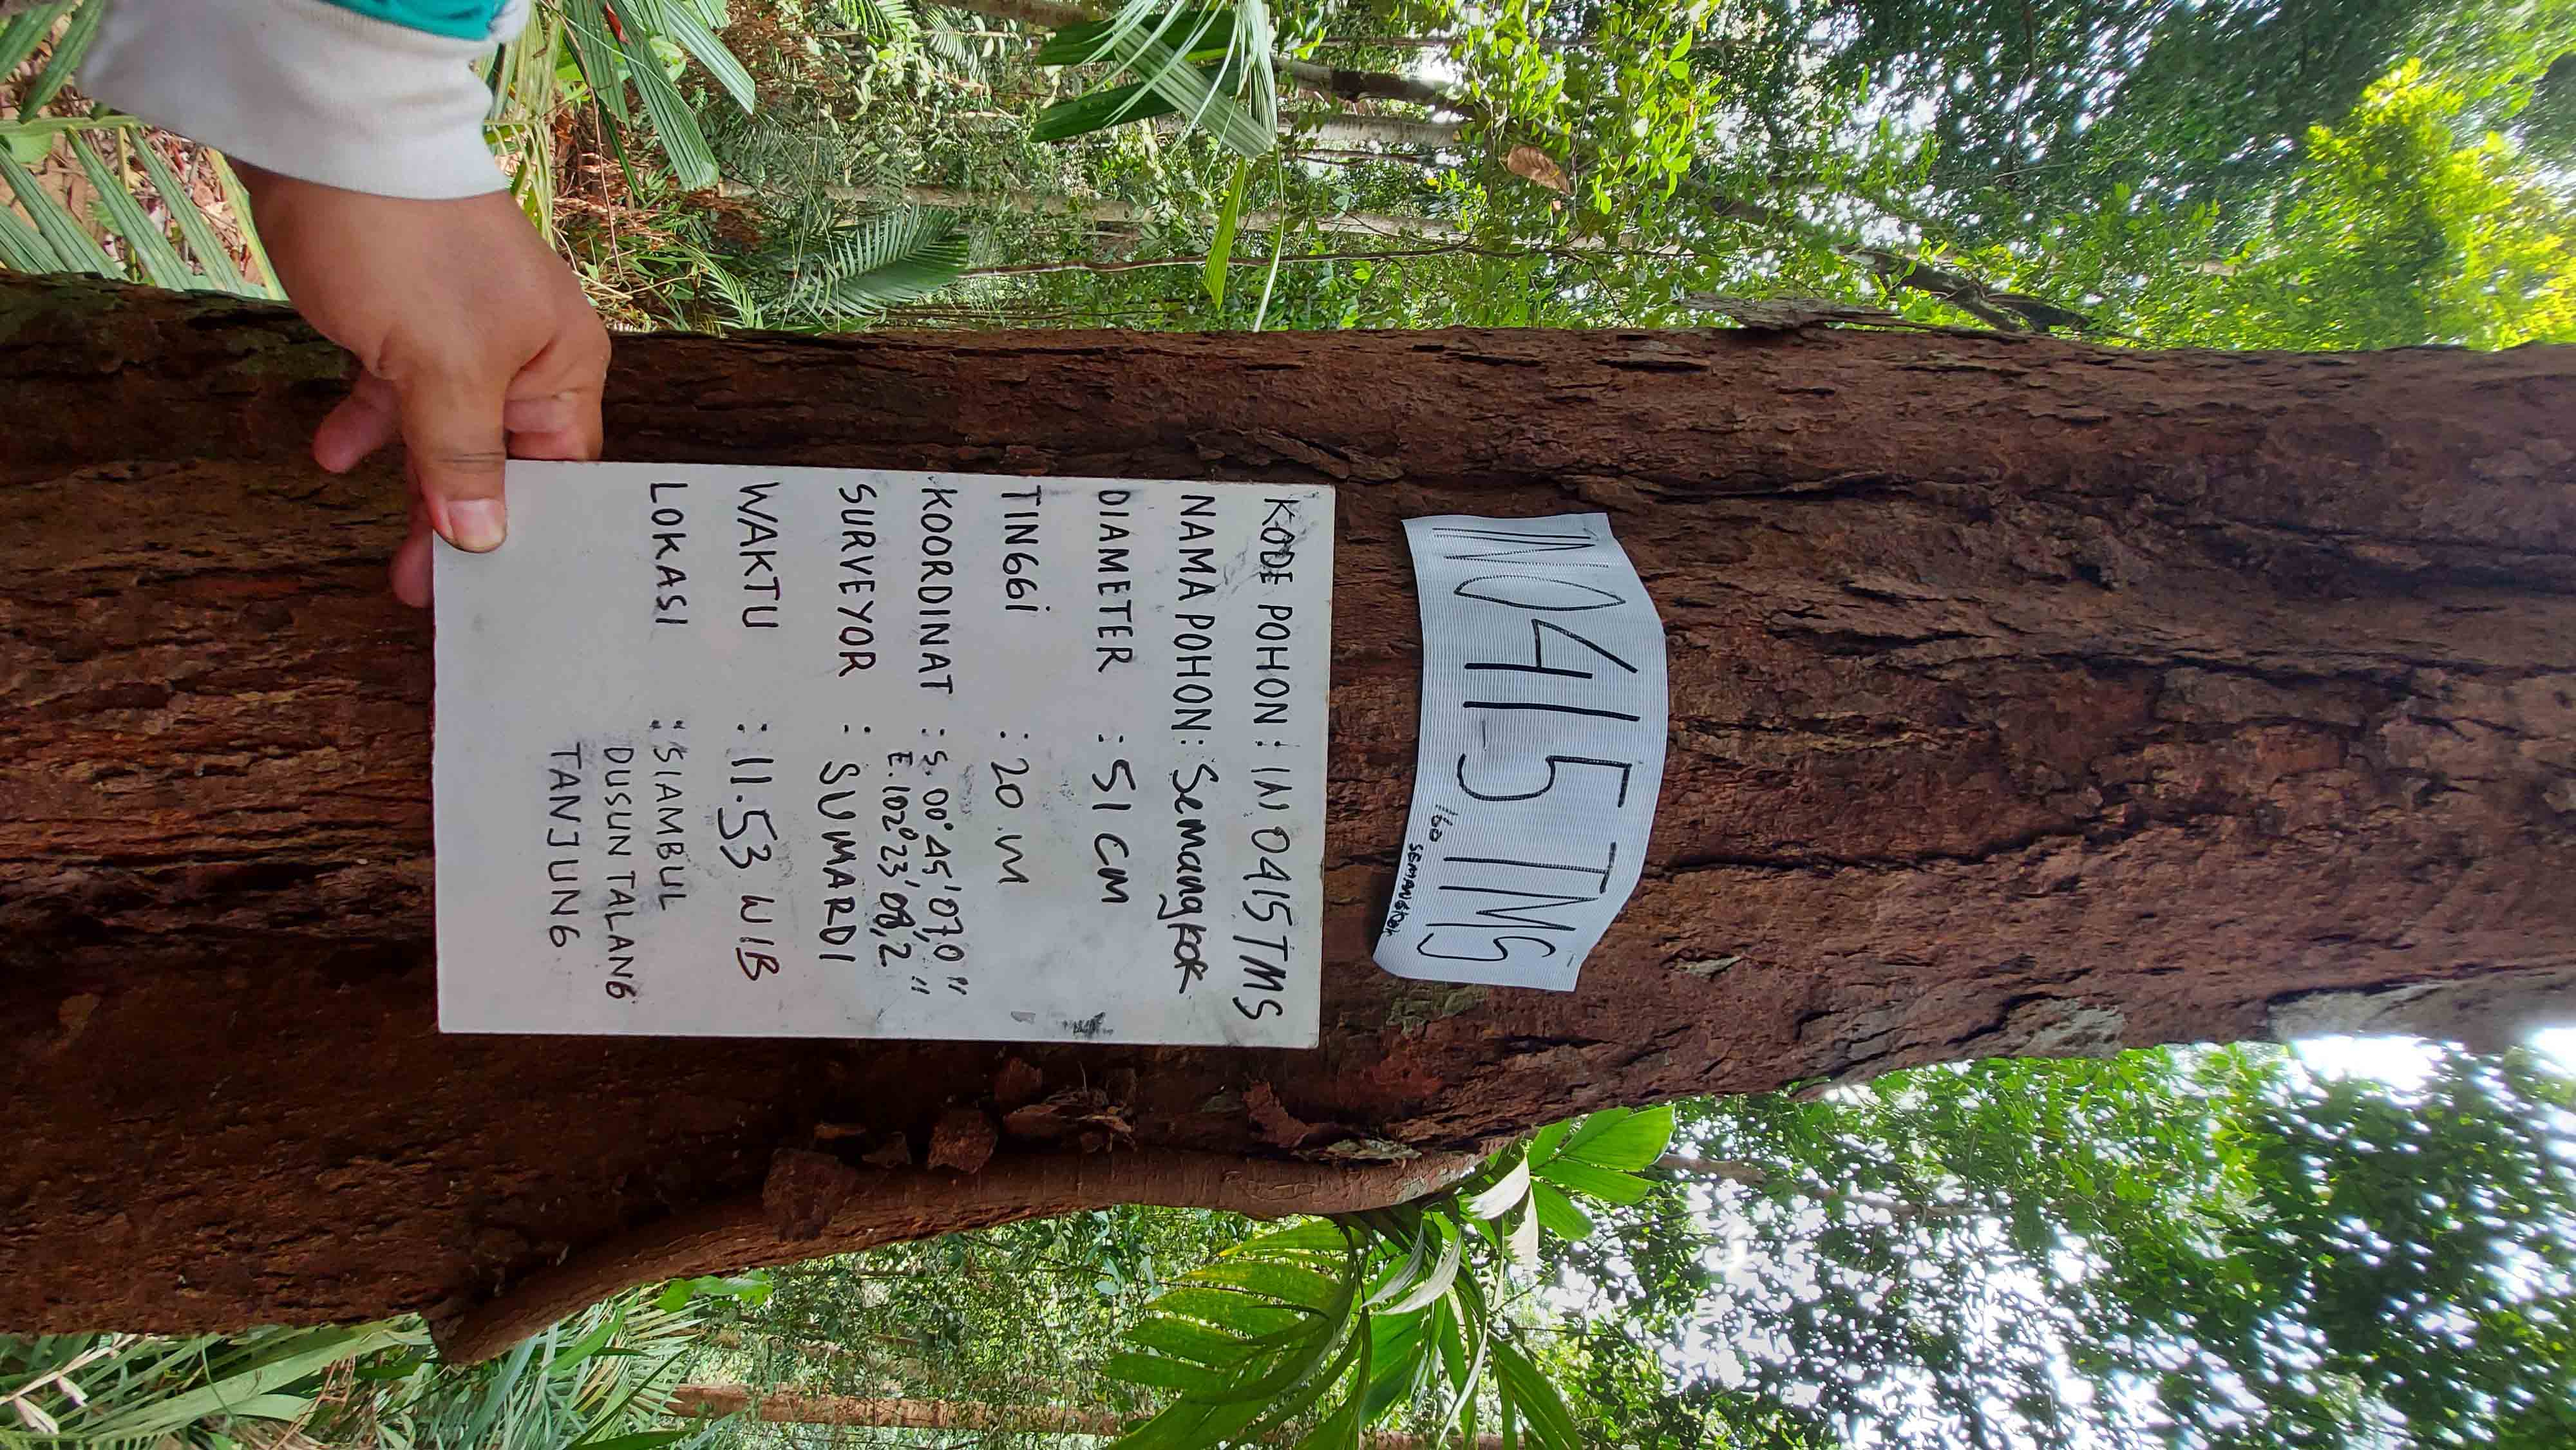 IN0415 TMS
160
SEMANGKOK
KODE POHON : IN 0415 TMS
NAMA POHON : Semangkok
DIAMETER : 51 CM
TINGGi : 20 M
KOORDINAT : S. 00° 45' 07,0"
E. 102° 23' 08,2"
SURVEYOR : SUMARDI
WAKTU : 11.53 WIB
LOKASI : SIAMBUL
DUSUN TALANG
TANJUNG